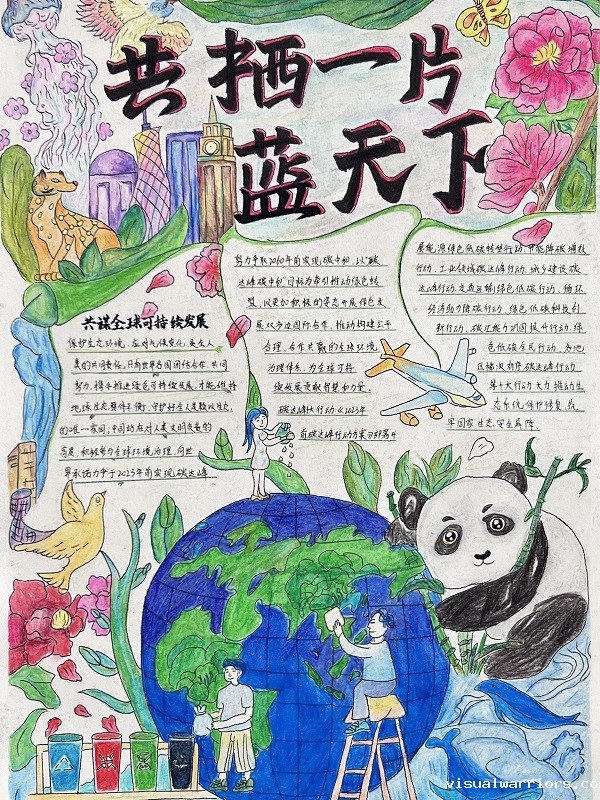 共栖一片
蓝天下
共谋全球可持续发展
保护生态环境，应对气候变化，是全人
类的共同责任，只有世界各国团结合作，共同
努力，携手推进绿色可持续发展，才能维持
地球生态整体平衡，守护好全人类赖以生态
的唯一家园，中国站在对人类文明负责的
高度，积极参与全球环境治理，向世
界承诺力争于2025年前实现碳达峰
努力争取2060年前实现碳中和，以"碳
达峰碳中和"目标为牵引推动绿色转
型，以更加积极的姿态开展绿色发
展双多边国际合作，推动构建公平
合理，合作共赢的全球环境
治理体系，为全球可持
续发展贡献智慧和力量
碳达峰大行动《2023年
前碳达峰行动方案》部署开
展能源绿色低碳转型行动，节能降碳增效
行动，工业领域碳达峰行动，城乡建设碳
达峰行动，交通运输绿色低碳行动，循环
经济助力降碳行动，绿色低碳科技创
新行动，碳汇能力巩固提升行动，绿
色低碳全民行动，各地
区梯次有序碳达峰行动
等十大行动，大力推动生
态系统保护修复，筑
牢国家生态安全屏障。
visualwarriors.com